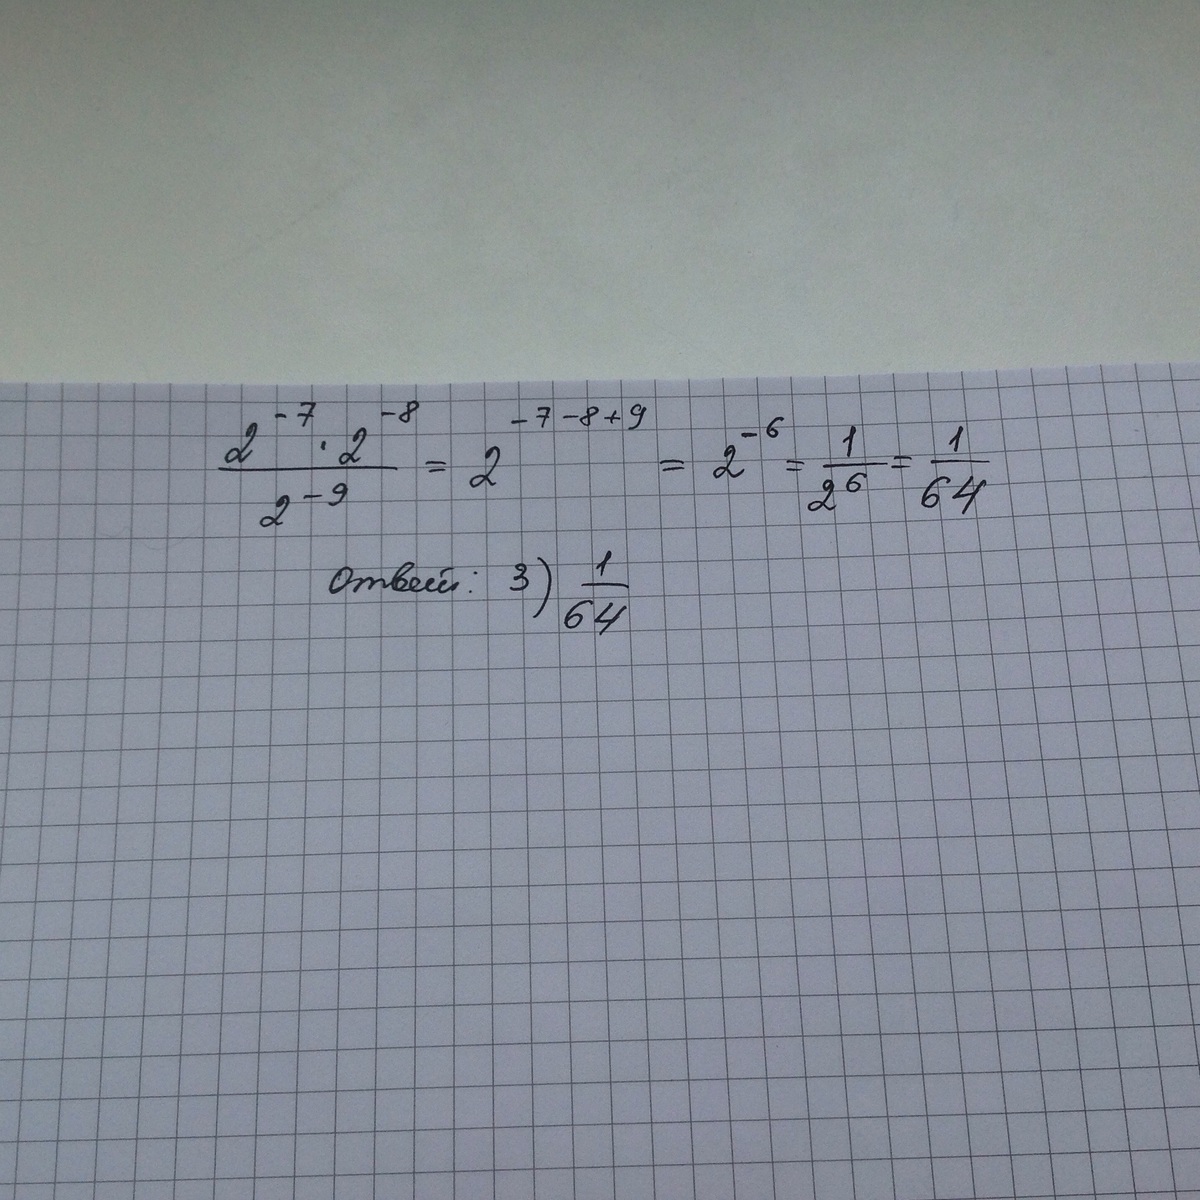 2^{-7} · 2^{-8} / 2^{-9} = 2^{-7-8+9} = 2^{-6} = 1/2^6 = 1/64
Ответ: 3) 1/64